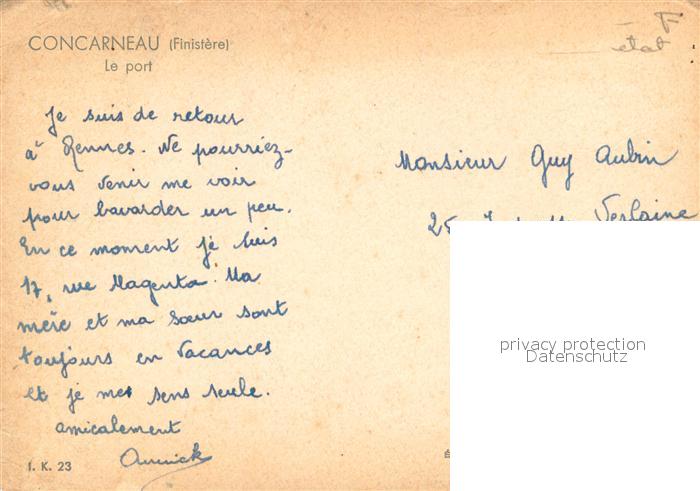 CONCARNEAU (Finistère)
Le port
état
Je suis de retour
à Rennes. Ne pourriez-
vous venir me voir
pour bavarder un peu.
En ce moment je suis
17, rue Magenta. Ma
mère et ma sœur sont
toujours en vacances
et je me sens seule.
amicalement
Annick
I. K. 23
Monsieur Guy Aubin
25 Verlaine
privacy protection
Datenschutz